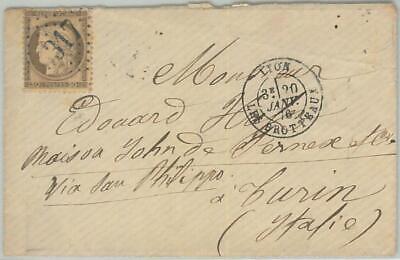 317
30 POSTES 30
LYON
3E 20
JANV.
76
LES BROTTEAUX
Monsieur
Edouard
Maison John de Fernex
Via San Philippo.
à Turin
(Italie)